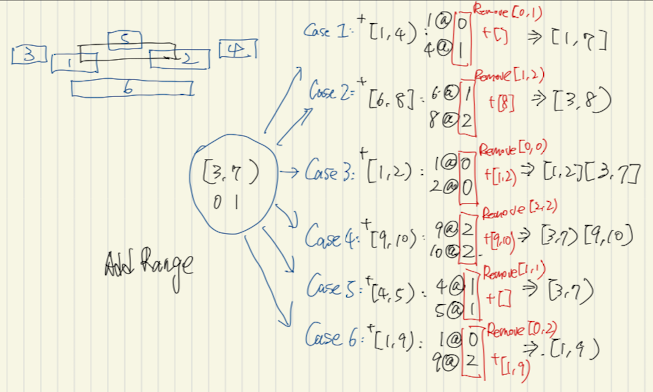 5
3
1
2
4
6
[3,7)
0 1
Add Range
Case 1: +[1,4) : 1@0 4@1 Remove[0,1) +[] ⇒ [1,7]
Case 2: +[6,8] : 6@1 8@2 Remove[1,2) +[8] ⇒ [3,8)
Case 3: +[1,2) : 1@0 2@0 Remove[0,0) +[1,2) ⇒ [1,2][3,7]
Case 4: +[9,10) : 9@2 10@2 Remove[2,2) +[9,10) ⇒ [3,7)[9,10)
Case 5: +[4,5) : 4@1 5@1 Remove[1,1) +[] ⇒ [3,7)
Case 6: +[1,9) : 1@0 9@2 Remove[0,2) +[1,9) ⇒ [1,9)